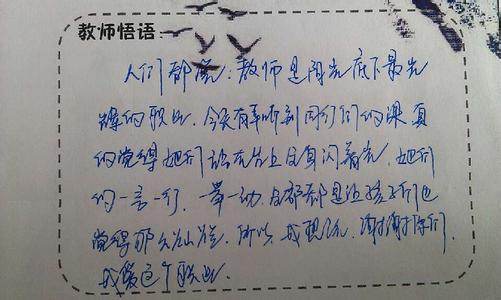 教师悟语:
人们都说:教师是阳光底下最光
辉的职业.今天有幸听到同行们的课真
的觉得她们站在台上自身闪着光,她们
的一言一行,一举一动,都是让孩子们也
觉得那么,所以,我想说,谢谢你们,
我爱这个职业.